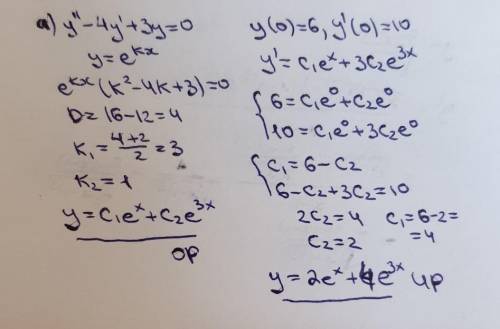 a) y''-4y'+3y=0
y=e^{kx}
e^{kx}(k²-4k+3)=0
D=16-12=4
k₁=\frac{4+2}{2}=3
k₂=1
y=c₁e^x+c₂e^{3x}
ор
y(0)=6, y'(0)=10
y'=c₁e^x+3c₂e^{3x}
{ 6=c₁e⁰+c₂e⁰
10=c₁e⁰+3c₂e⁰
{ c₁=6-c₂
6-c₂+3c₂=10
2c₂=4 c₁=6-2=
c₂=2 =4
y=2e^x+4e^{3x} чр